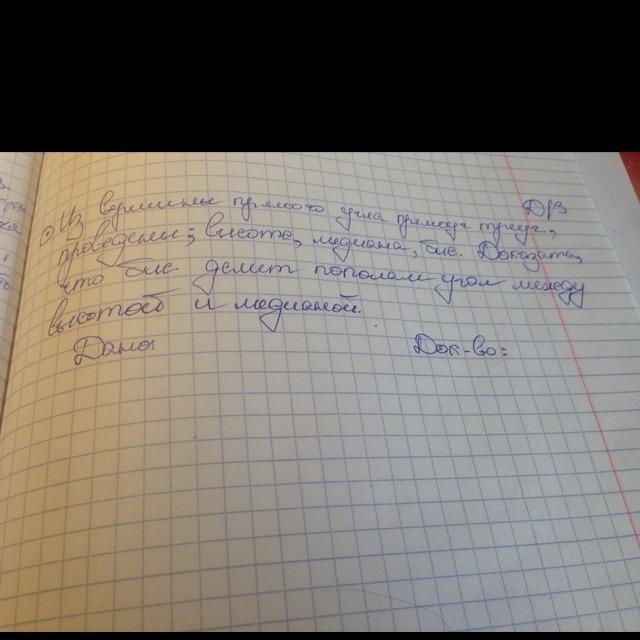 Из вершины прямого угла прямоуг. треуг. ДР
проведены; высота, медиана, бис. Доказать,
что бис. делит пополам угол между
высотой и медианой.
Дано: Док-во: